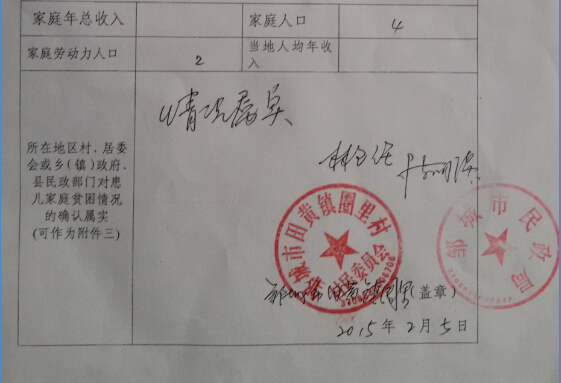 家庭年总收入 家庭人口 4
家庭劳动力人口 2 当地人均年收
入
情况属实
所在地区村、居委
会或乡(镇)政府、
县民政部门对患
儿家庭贫困情况
的确认属实
(可作为附件三)
城市田黄镇圈里村
村民委员会
城市民政局
(盖章)
2015年2月5日